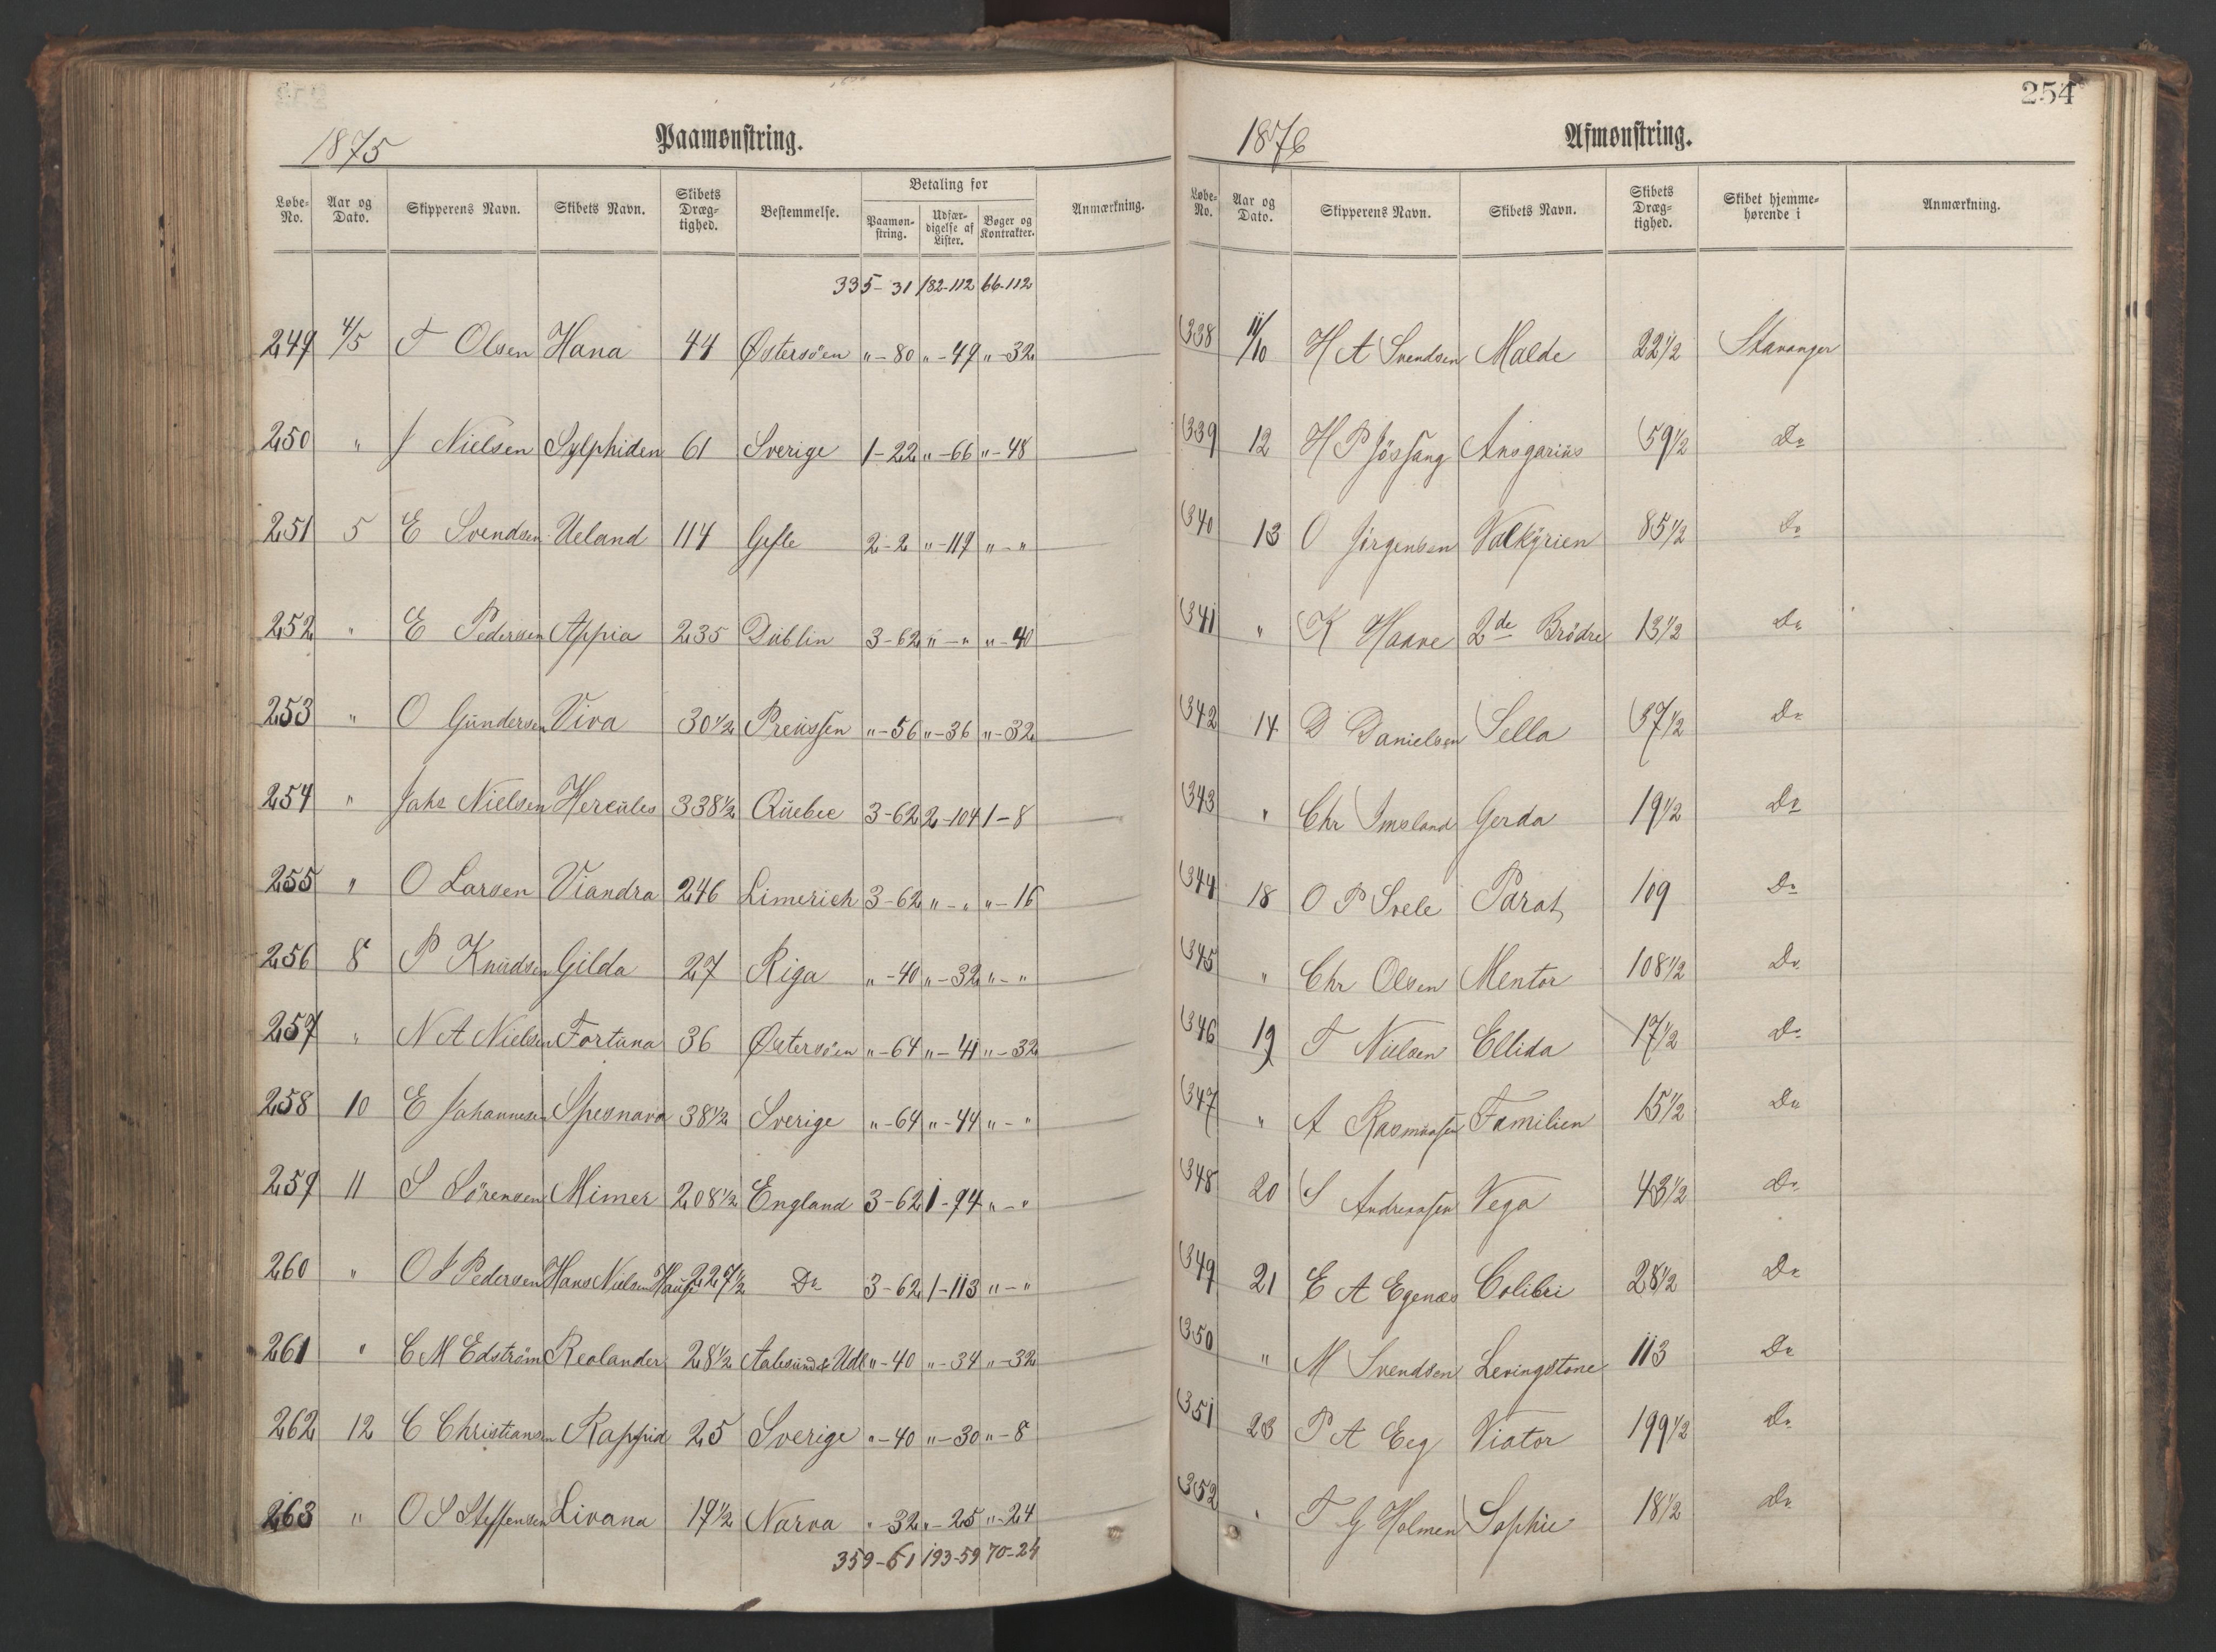 1875 Paamønstring.
Løbe-No. Aar og Dato. Skipperens Navn. Skibets Navn. Skibets Dræg-tighed. Bestemmelse. Betaling for Paamøn-string. Udfær-digelse af Lister. Bøger og Kontrakter. Anmærkning.
335-31 182-112 66-112
249 4/5 T Olsen Hana 44 Østersöen "-80 "-49 "-32
250 " J Nielsen Sylphiden 61 Sverige 1-22 "-66 "-48
251 5 E Svendsen Ueland 114 Gefle 2-2 "-119 "-"
252 " E Pedersen Appia 235 Dublin 3-62 "-" "-40
253 " O Gundersen Viva 30 1/2 Preussen "-56 "-36 "-32
254 " Johs Nielsen Hercules 338 1/2 Quebec 3-62 2-104 1-8
255 " O Larsen Viandra 246 Limerich 3-62 "-" "-16
256 8 P Knudsen Gilda 27 Riga "-40 "-32 "-"
257 " N A Nielsen Fortuna 36 Østersöen "-64 "-41 "-32
258 10 E Johannesen Spesnava 38 1/2 Sverige "-64 "-44 "-"
259 11 S Sörensen Mimer 208 1/2 England 3-62 1-94 "-"
260 " O S Pedersen Hans Nielsen Hauge 227 1/2 Do 3-62 1-113 "-"
261 " C M Edström Reolander 28 1/2 Aalesund & Udl "-40 "-34 "-32
262 12 C Christiansen Rappid 25 Sverige "-40 "-30 "-8
263 " O S Steffensen Livana 19 1/2 Narva "-32 "-25 "-24
359-61 193-59 70-24
254
1876 Afmønstring.
Løbe-No. Aar og Dato. Skipperens Navn. Skibets Navn. Skibets Dræg-tighed. Skibet hjemme-hørende i Anmærkning.
338 11/10 H A Svendsen Malde 22 1/2 Stavanger
339 12 H P Jössang Ansgarius 59 1/2 Do
340 13 O Jörgensen Valkyrien 85 1/2 Do
341 " K Haave 2de Brödre 13 1/2 Do
342 14 D Danielsen Sella 37 1/2 Do
343 " Chr Imsland Gerda 19 1/2 Do
344 18 O P Svele Parat 109 Do
345 " Chr Olsen Mentor 108 1/2 Do
346 19 T Nielsen Ellida 17 1/2 Do
347 " A Rasmussen Familien 15 1/2 Do
348 20 S Andreassen Vega 43 1/2 Do
349 21 E A Egenæs Colibri 28 1/2 Do
350 " M Svendsen Levingstone 113 Do
351 23 P A Eeg Viator 199 1/2 Do
352 " T G Holmen Sophie 18 1/2 Do